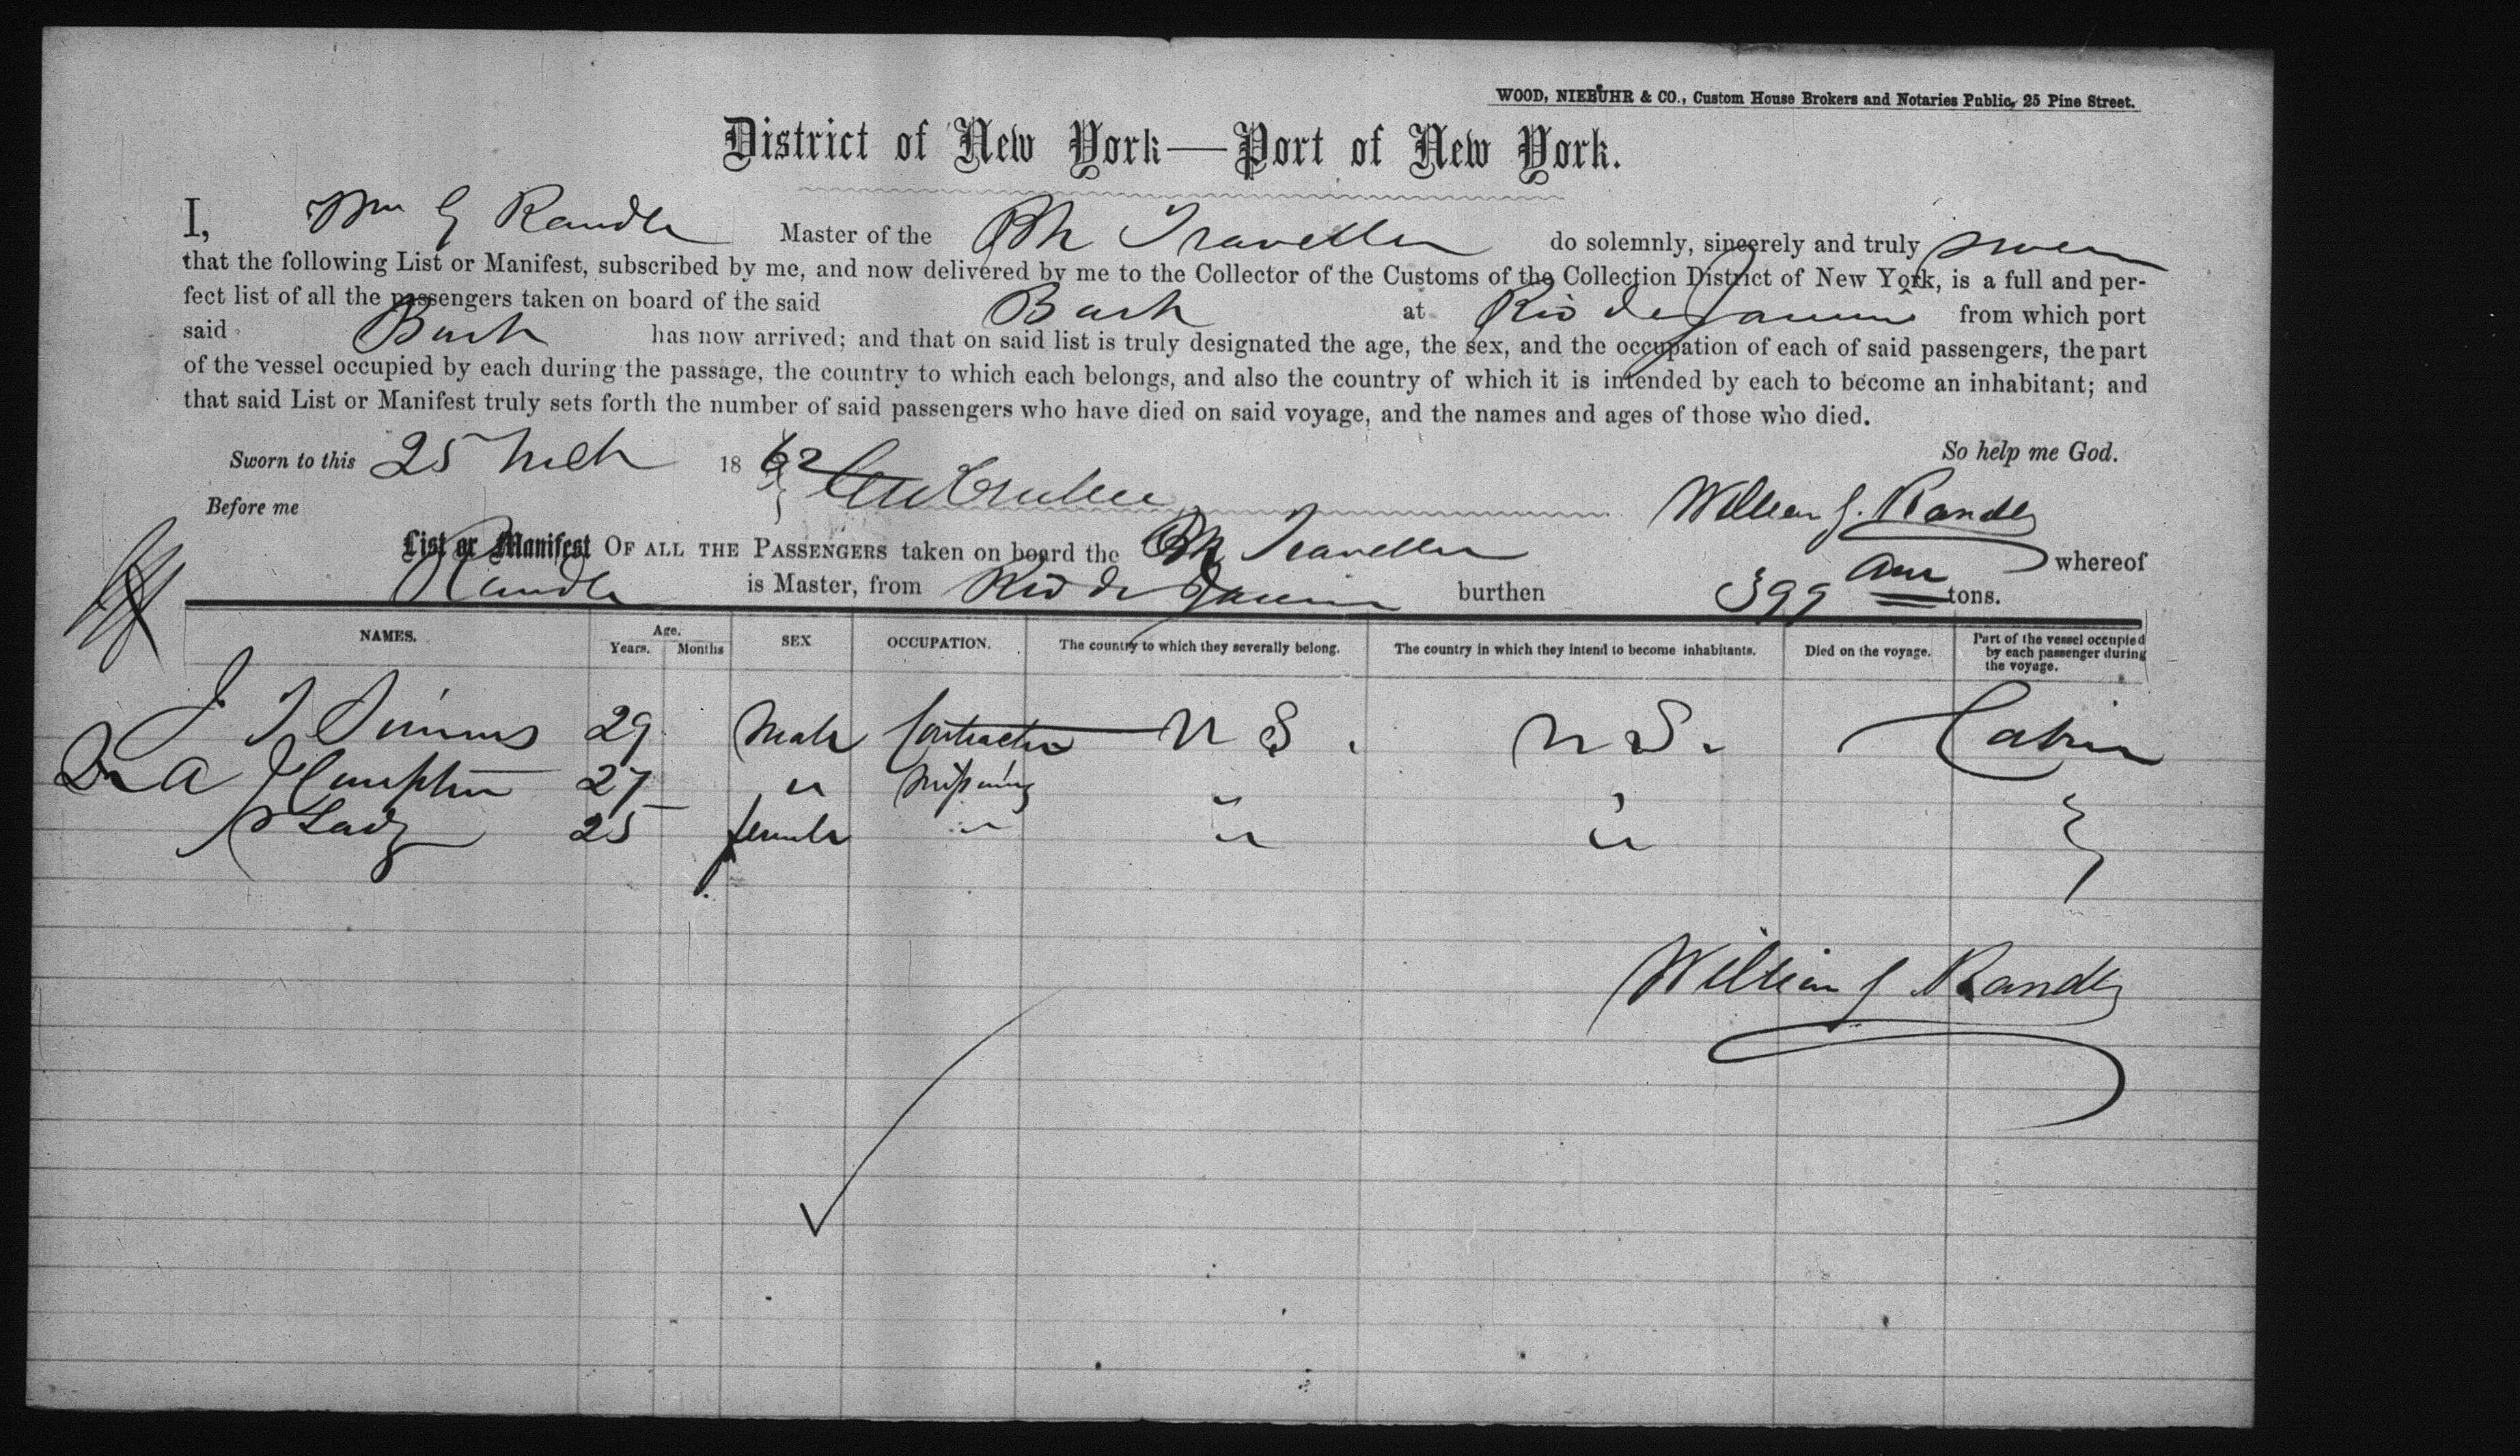 WOOD, NIEBUHR & CO., Custom House Brokers and Notaries Public, 25 Pine Street.
District of New York—Port of New York.
I, Wm G Randle Master of the Bk Traveller do solemnly, sincerely and truly swear
that the following List or Manifest, subscribed by me, and now delivered by me to the Collector of the Customs of the Collection District of New York, is a full and per-
fect list of all the passengers taken on board of the said Bark at Rio de Janeiro from which port
said Bark has now arrived; and that on said list is truly designated the age, the sex, and the occupation of each of said passengers, the part
of the vessel occupied by each during the passage, the country to which each belongs, and also the country of which it is intended by each to become an inhabitant; and
that said List or Manifest truly sets forth the number of said passengers who have died on said voyage, and the names and ages of those who died.
Sworn to this 25 Mch 1862 So help me God.
Before me William G. Randle
List or Manifest OF ALL THE PASSENGERS taken on board the Bk Traveller whereof
Randle is Master, from Rio de Janeiro burthen 399 tons.
NAMES. Age. Years. Months SEX OCCUPATION. The country to which they severally belong. The country in which they intend to become inhabitants. Died on the voyage. Part of the vessel occupied by each passenger during the voyage.
J T 29 Male Contractor U S. U S. Cabin
Dr A Hampton 27 " " "
& Lady 25 female " " "
William G Randle